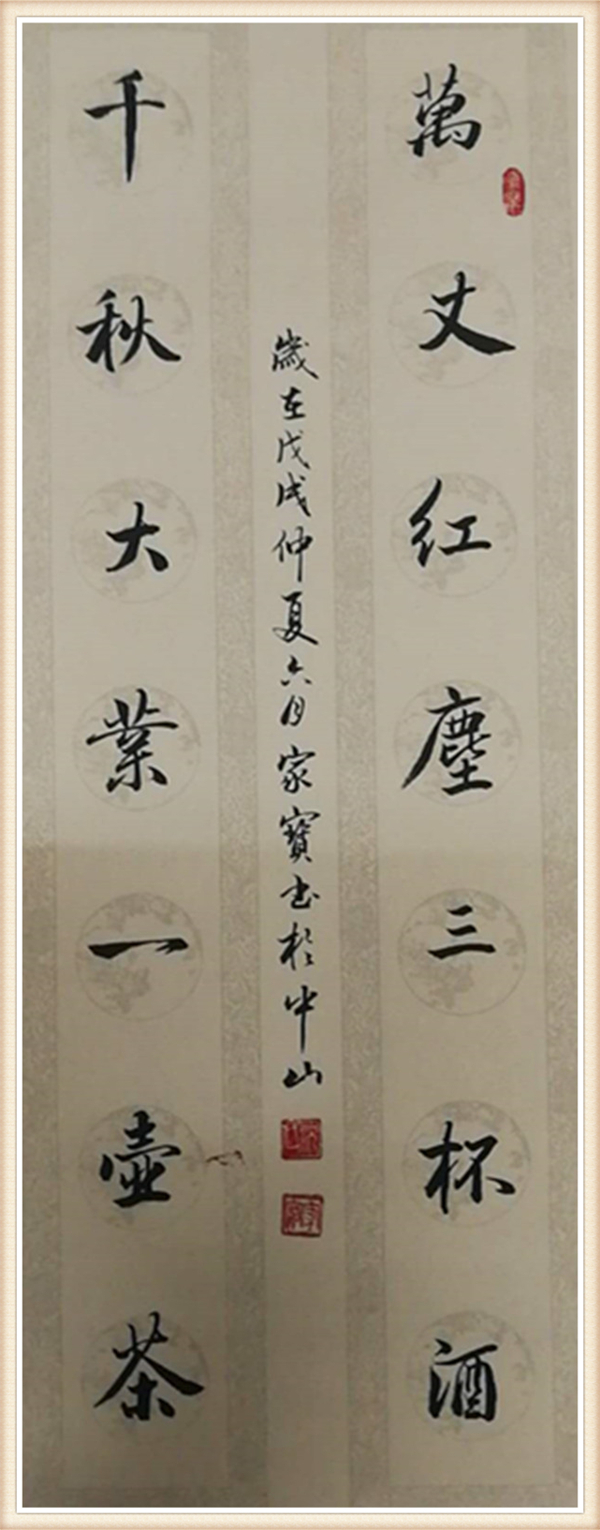 萬丈紅塵三杯酒
千秋大業一壺茶
歲在戊戌仲夏六月家寶书於中山